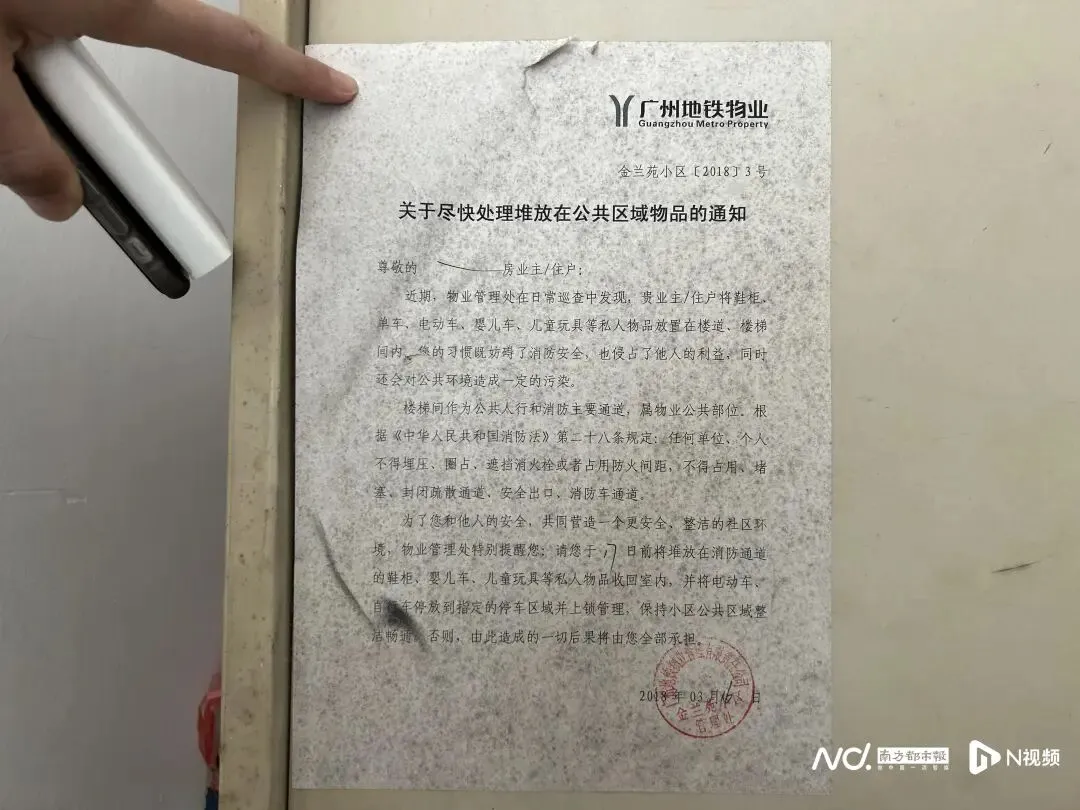 广州地铁物业
Guangzhou Metro Property
金兰苑小区〔2018〕3号
关于尽快处理堆放在公共区域物品的通知
尊敬的 房业主/住户:
近期，物业管理处在日常巡查中发现，贵业主/住户将鞋柜、
单车、电动车、婴儿车、儿童玩具等私人物品放置在楼道、楼梯
间内。您的习惯既妨碍了消防安全，也侵占了他人的利益，同时
还会对公共环境造成一定的污染。
楼梯间作为公共人行和消防主要通道，属物业公共部位。根
据《中华人民共和国消防法》第二十八条规定：任何单位、个人
不得埋压、圈占、遮挡消火栓或者占用防火间距，不得占用、堵
塞、封闭疏散通道、安全出口、消防车通道。
为了您和他人的安全，共同营造一个更安全、整洁的社区环
境，物业管理处特别提醒您：请您于 17 日前将堆放在消防通道
的鞋柜、婴儿车、儿童玩具等私人物品收回室内，并将电动车、
自行车停放到指定的停车区域并上锁管理，保持小区公共区域整
洁畅通。否则，由此造成的一切后果将由您全部承担。
2018年03月 日
金兰苑
管理处
南方都市报
N视频